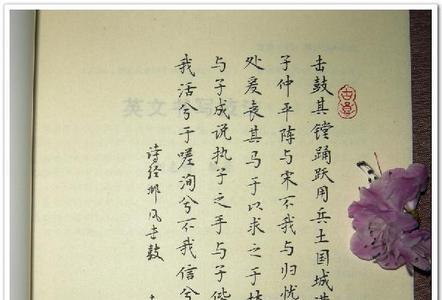 击鼓其镗踊跃用兵土国城
子仲平陈与宋不我与归忧
处爰丧其马于以求之于林
与子成说执子之手与子偕
我活兮于嗟洵兮不我信兮
诗经邶风击鼓
英文书写